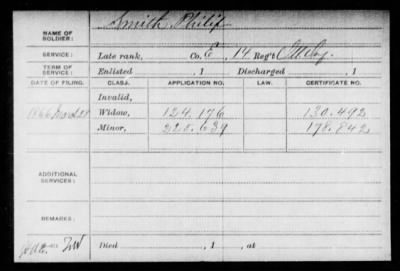 NAME OF SOLDIER: Smith Philip
SERVICE: Late rank, Co. E, 14 Reg't
TERM OF SERVICE: Enlisted , 1 Discharged , 1
DATE OF FILING. CLASS. APPLICATION NO. LAW. CERTIFICATE NO.
Invalid,
1866 March 28 Widow, 124.176 130.492
Minor, 220.639 178.842
ADDITIONAL SERVICES:
REMARKS:
Died , 1 , at